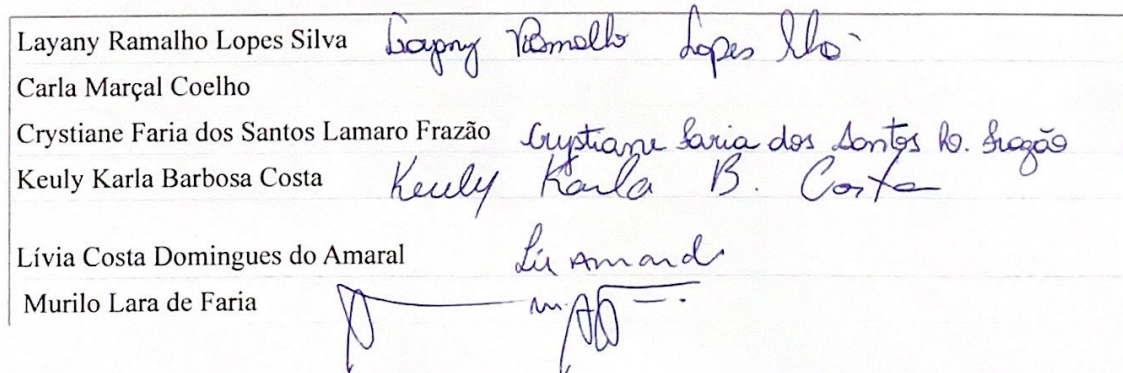 Layany Ramalho Lopes Silva Layany Ramalho Lopes Silva
Carla Marçal Coelho
Crystiane Faria dos Santos Lamaro Frazão Crystiane Faria dos Santos L. Frazão
Keuly Karla Barbosa Costa Keuly Karla B. Costa
Lívia Costa Domingues do Amaral
Murilo Lara de Faria